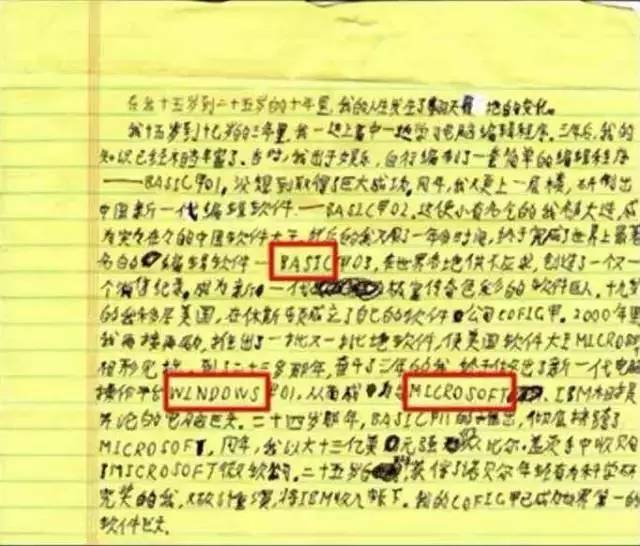 在我十五岁到二十五岁的十年里,我的人生发生了翻天覆地的变化。
我十五岁到十八岁的三年里,我一边上高中一边学习电脑编程程序。三年后,我的
知识已经相当丰富了。当时,我出于娱乐,自行编制了一套简单的编程程序
——BASIC甲01,没想到取得了巨大成功。同年,我又更上一层楼,研制出
中国新一代编程软件——BASIC甲02。这使小有名气的我名声大噪,成
为实实在在的中国软件大王。然后的我又用了一年的时间,终于完成了世界上最著
名的编程软件——BASIC甲03,在世界各地供不应求,创造了一个又一
个销售纪录,成为新一代极富传奇色彩的软件巨人。十九岁
的我移居美国,在休斯顿成立了自己的软件公司COFIG甲。2000年里
我再接再励,推出了一批又一批地软件,使美国软件大王MICROSO
相形见拙,到了二十三岁那年,奋斗了三年的我终于作出了新一代电脑
操作平台WINDOWS甲01,从而成为与MICROSOFT、IBM相提
并论的电脑巨头。二十四岁那年,BASIC甲11的推出,彻底挤跨了
MICROSOFT,同年,我以大十三亿美元强从比尔·盖茨手中收购
了MICROSOFT微软公司。二十五岁,获得了诺贝尔年轻有为科学研
究奖的我,将IBM收入帐下。我的COFIG甲已成为世界第一的
软件巨头。